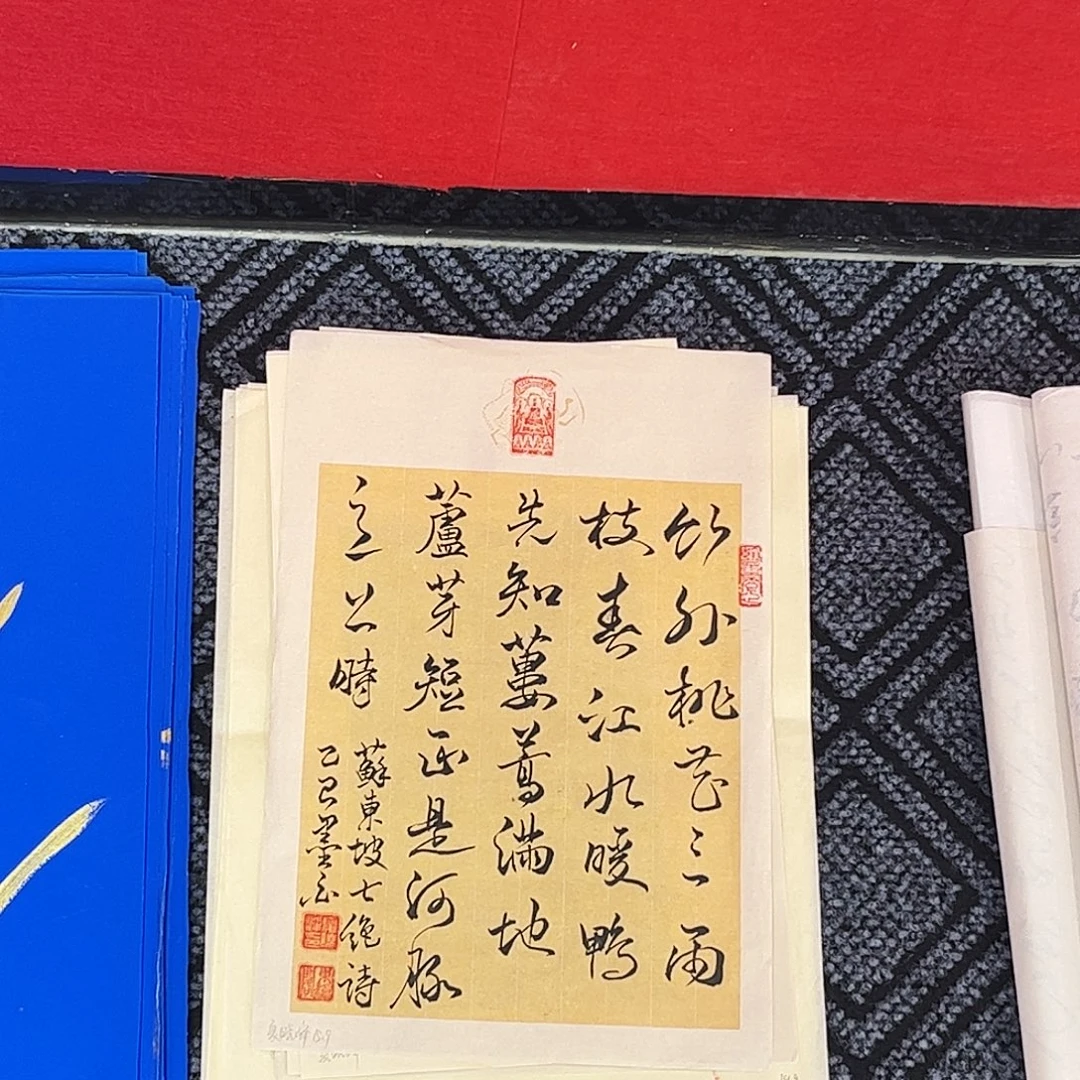 竹外桃花三兩
枝春江水暖鴨
先知蔞蒿滿地
蘆芽短正是河豚
上時
蘇東坡七絕詩
乙巳